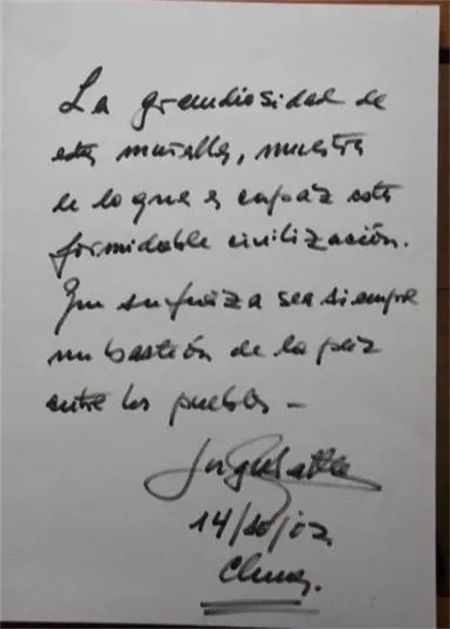 La grandiosidad de
esta muralla, muestra
de lo que es capaz esta
formidable civilización.
Que su fuerza sea siempre
un bastión de la paz
entre los pueblos -
Jorge Batlle
14/10/02
China.